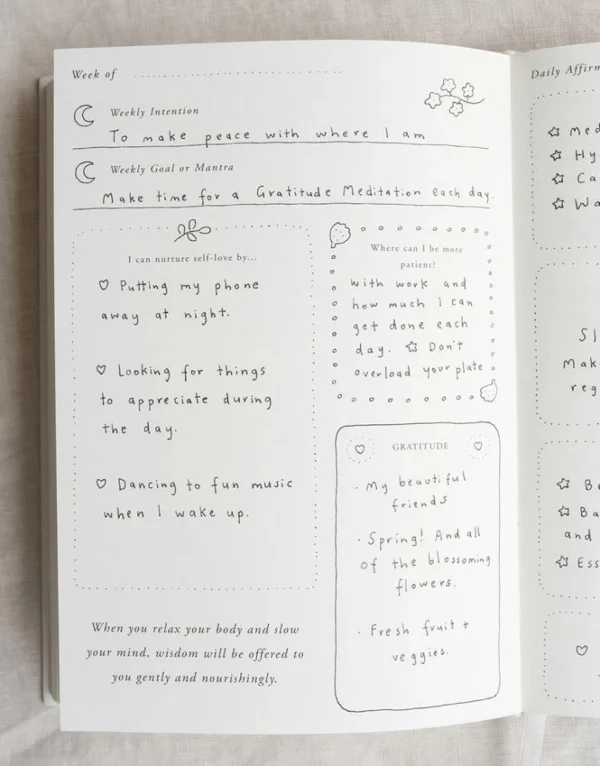 Week of
Weekly Intention
To make peace with where I am
Weekly Goal or Mantra
Make time for a Gratitude Meditation each day.
I can nurture self-love by...
Putting my phone
away at night.
Looking for things
to appreciate during
the day.
Dancing to fun music
when I wake up.
When you relax your body and slow
your mind, wisdom will be offered to
you gently and nourishingly.
Where can I be more
patient?
with work and
how much I can
get done each
day. Don't
overload your plate
GRATITUDE
· My beautiful
friends
· Spring! And all
of the blossoming
flowers.
· Fresh fruit +
veggies.
Daily
and